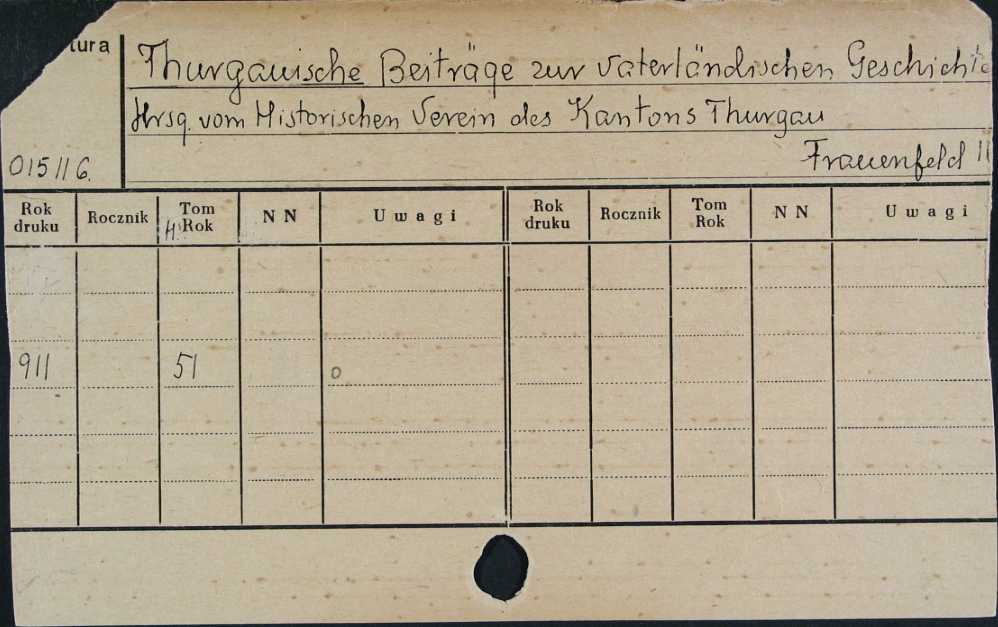 tura
Thurgauische Beiträge zur vaterländischen Geschichte
Hrsg. vom Historischen Verein des Kantons Thurgau
Frauenfeld 11
015116.
Rok druku Rocznik Tom Rok N N Uwagi Rok druku Rocznik Tom Rok N N Uwagi
H.
911 51 o